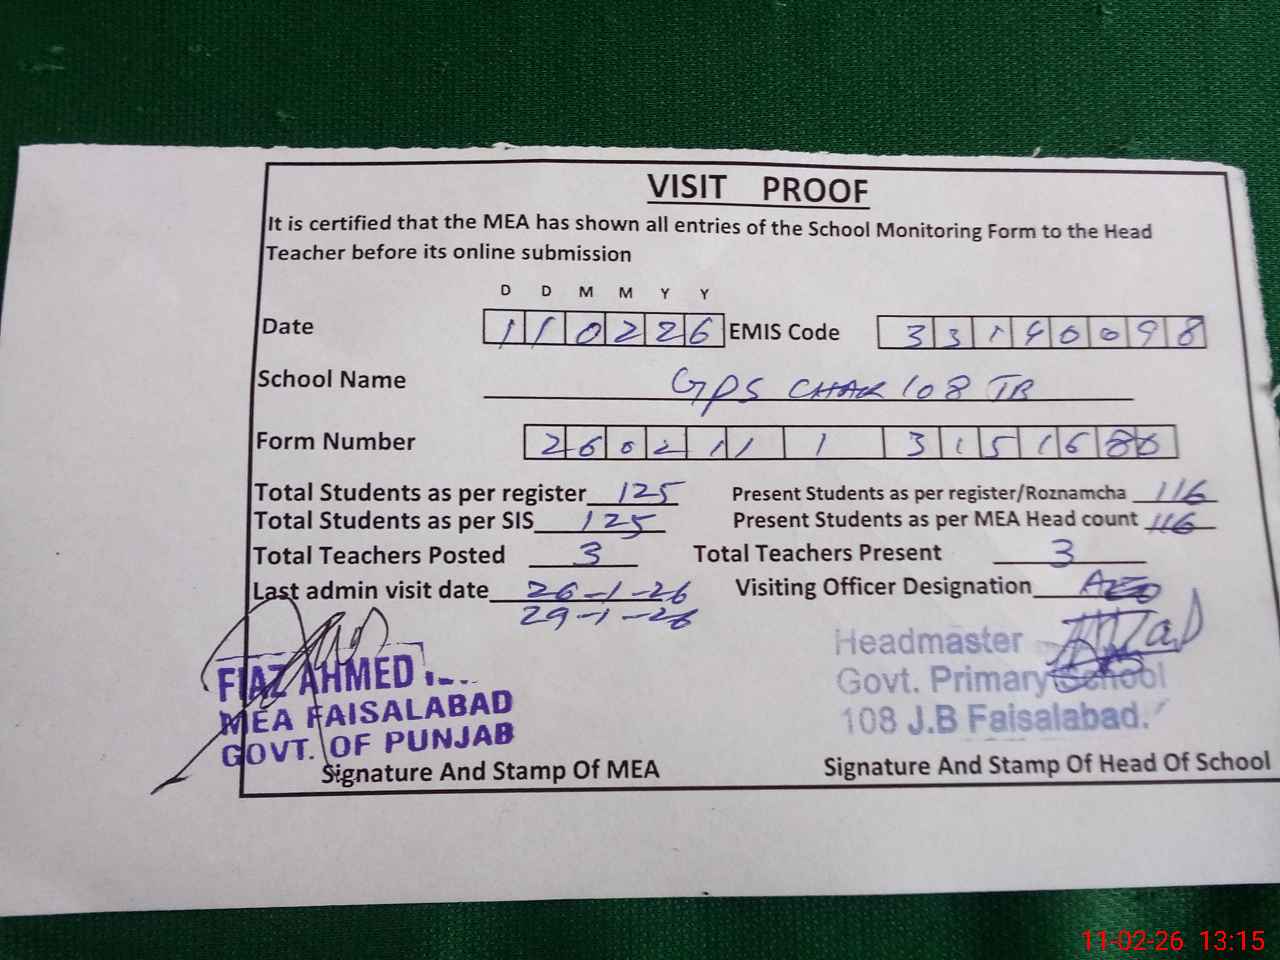 VISIT PROOF
It is certified that the MEA has shown all entries of the School Monitoring Form to the Head
Teacher before its online submission
D D M M Y Y
Date 110226 EMIS Code 33140098
School Name GPS CHAK 108 JB
Form Number 2602111315168
Total Students as per register 125 Present Students as per register/Roznamcha 116
Total Students as per SIS 125 Present Students as per MEA Head count 116
Total Teachers Posted 3 Total Teachers Present 3
Last admin visit date 26-1-26 Visiting Officer Designation AEO
29-1-26
FIAZ AHMED
MEA FAISALABAD
GOVT. OF PUNJAB
Headmaster
Govt. Primary School
108 J.B Faisalabad.
Signature And Stamp Of MEA Signature And Stamp Of Head Of School
11-02-26 13:15